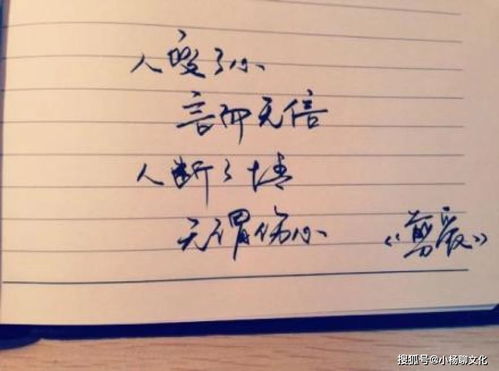 人变了心
言而无信
人断了情
无谓伤心 《剪爱》
搜狐号@小杨聊文化